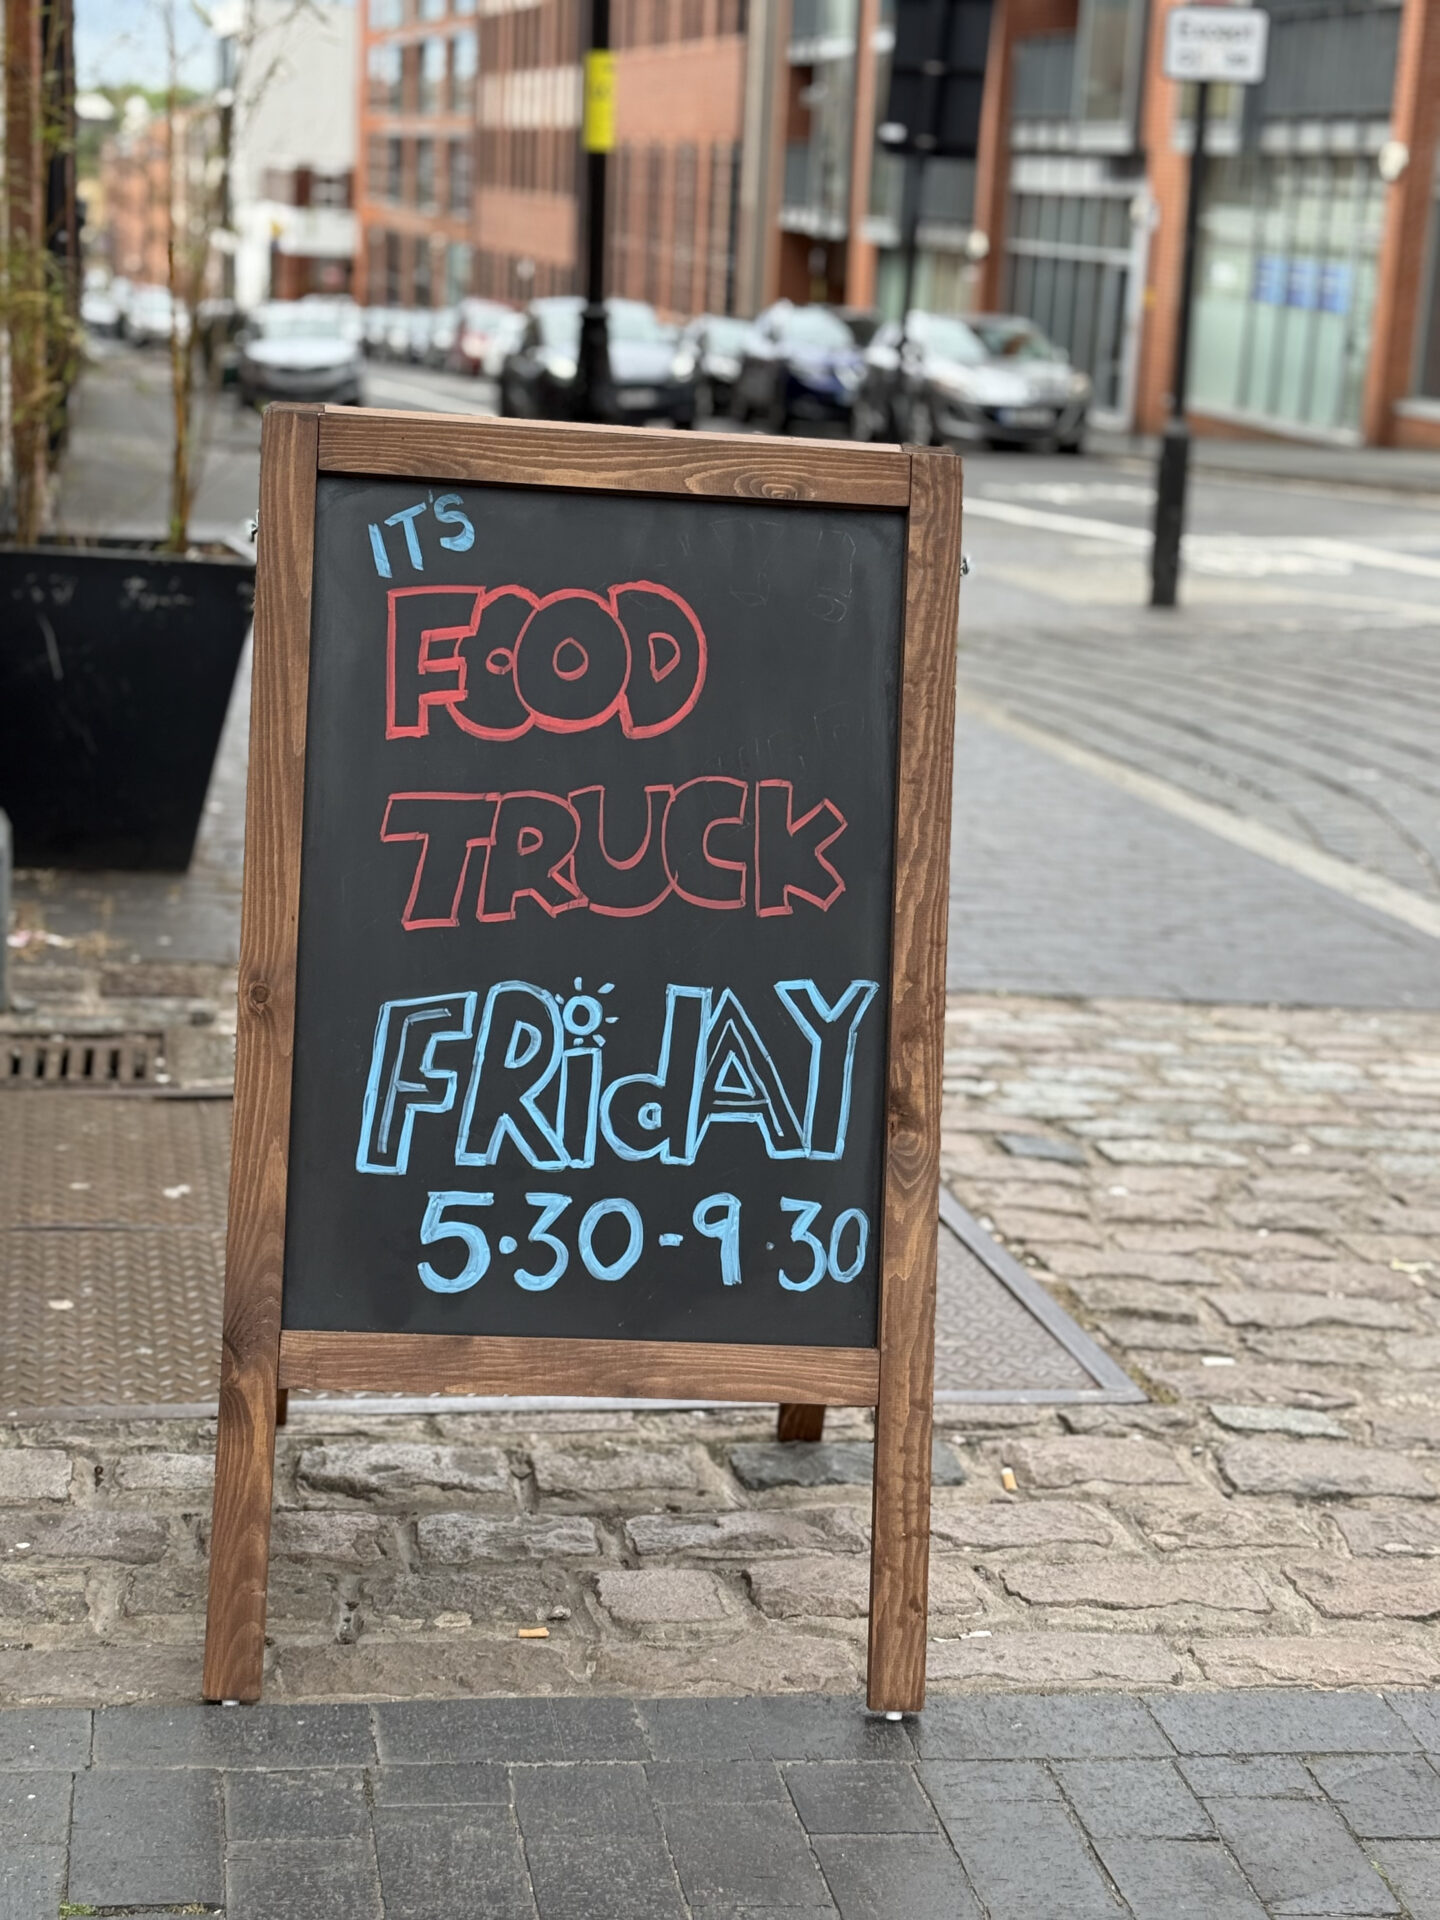 IT'S
FOOD
TRUCK
FRidAY
5.30-9.30
Except